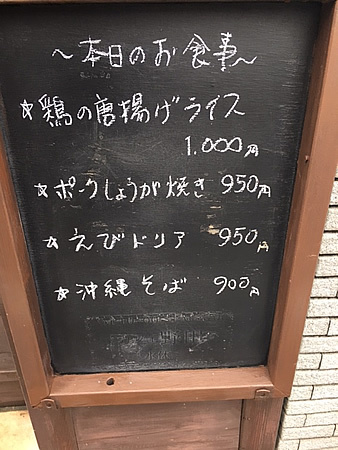 ～本日のお食事～
☆鶏の唐揚げライス
1.000円
☆ポークしょうが焼き 950円
☆えびドリア 950円
☆沖縄そば 900円